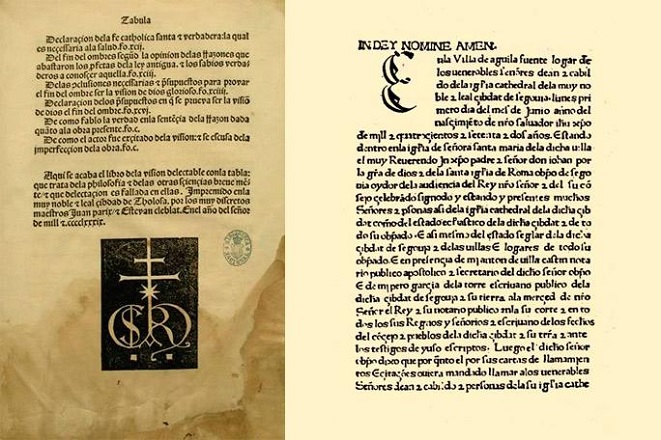 Tabula
Declaraciõn dela fe catholica santa ⁊ verdadera:la qual
es necessaria ala salud.fo.xcij.
Del fin del ombres segũd la opinion delas ffazones que
abastaron los pfetas dela ley antigua. ⁊ los sabios verda
deros a conosçer aquella.fo.xciij.
Delas ↄclusiones necessarias ⁊ psupuestos para prouar
el fin del ombre ser la vision de dios glorioso.fo.xciiij.
Declaraciõn delos psupuestos en q̃ se prueua ser la visiõ
de dios el fin del ombre.fo.xcv.
De como fablo la verdad enla sentẽçia dela ffazon daba
quãto ala obra presente.fo.c.
De como el actor fue exçitado dela vision:⁊ se escusa dela
imperfecciõn dela obra.fo.c.
Aqui se acaba el libro dela vision delectable conla tabla:
que trata dela philosofia ⁊ delas otras sciençias breue mẽ
te ⁊ que delectacion es fallada en ellas. Impremido enla
muy noble ⁊ leal çibdad de Tholosa, por los muy discretos
maestros Juan parix ⁊ Esteuan cleblat. Enel año del señor
de mill ⁊ cccclxxxix.
IN DEY NOMINE AMEN.
Enla Villa de aguila fuente logar de
los uenerables señores dean ⁊ cabil
do dela iglia cathedral dela muy no
ble ⁊ leal çibdat de segouia lunes pri
mero dia del mes de Junio anno del
nasçimẽto de nr̃o saluador ihũ xp̃o
de mill ⁊ quatroçientos ⁊ setenta ⁊ dos años. Estando
dentro enla iglia de señora santa maria dela dicha uilla
el muy Reuerendo In xp̃o padre ⁊ señor don iohan por
la gr̃a de dios ⁊ dela santa iglia de Roma obp̃o de sego
uia oydor dela audiencia del Rey nr̃o señor ⁊ del su cõ
sejo celebrãdo signodo y estando y presentes muchos
Señores ⁊ psonas asi dela iglia cathedral dela dicha çib
dat como del estado ecłiastico dela dicha çibdat ⁊ de to
do su obp̃ado. E asi mesmo del estado seglar dela dicha
çibdat de segouia ⁊ delas uillas E logares de todo su
obp̃ado. E en presencia de mi anton de uilla castin nota
rio publico apostolico ⁊ secretario del dicho señor obp̃o
E de mi pero garcia dela torre escriuano publico dela
dicha çibdat de segouia ⁊ su tierra ala merced de nr̃o
Señor el Rey ⁊ su notario publico enla su corte ⁊ en to
dos los sus Regnos y señorios ⁊ escriuano delos fechos
del cõcejo ⁊ pueblos dela dicha çibdat ⁊ su tr̃ra ⁊ ante
los testigos de yuso escriptos. Luego el dicho señor
obp̃o dixo que por q̃nto el por sus cartas de llamamien
tos E çitações ouiera mandado llamar alos uenerables
Señores dean ⁊ cabildo ⁊ personas dela su iglia cathe